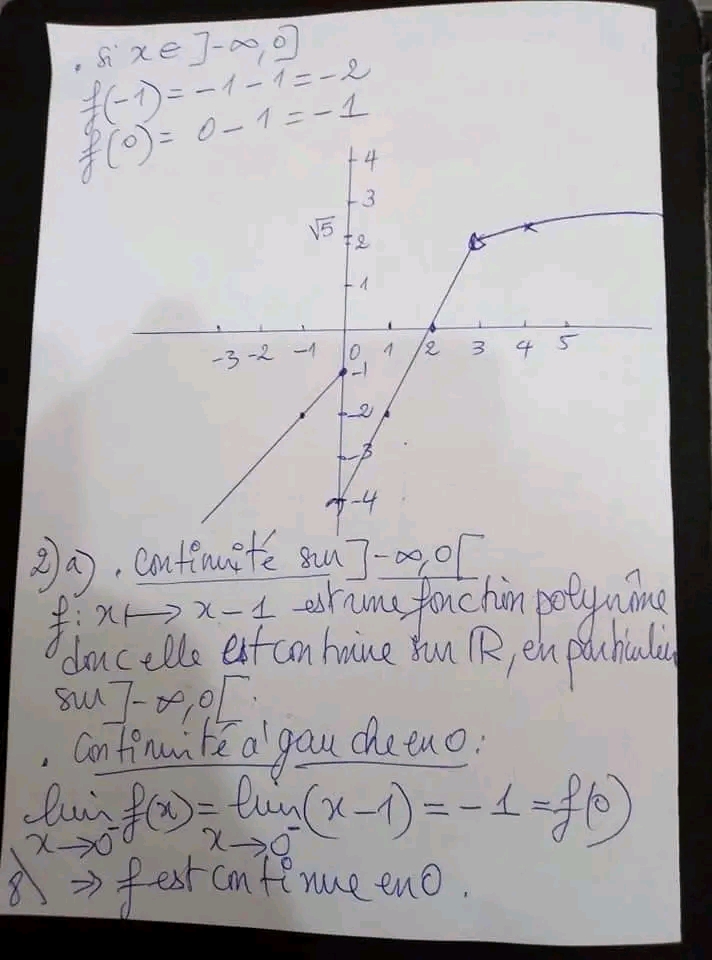 . Si x ∈ ]-∞,0]
f(-1) = -1 - 1 = -2
f(0) = 0 - 1 = -1
4
3
√5
2
1
-3 -2 -1 0 1 2 3 4 5
-1
-2
-3
-4
2) a) . Continuité sur ]-∞,0[
f: x ↦ x - 1 est une fonction polynôme
donc elle est continue sur ℝ, en particulier
sur ]-∞,0[.
. Continuité à gauche en 0:
lim f(x) = lim (x-1) = -1 = f(0)
x→0⁻ x→0⁻
8\ ⇒ f est continue en 0.